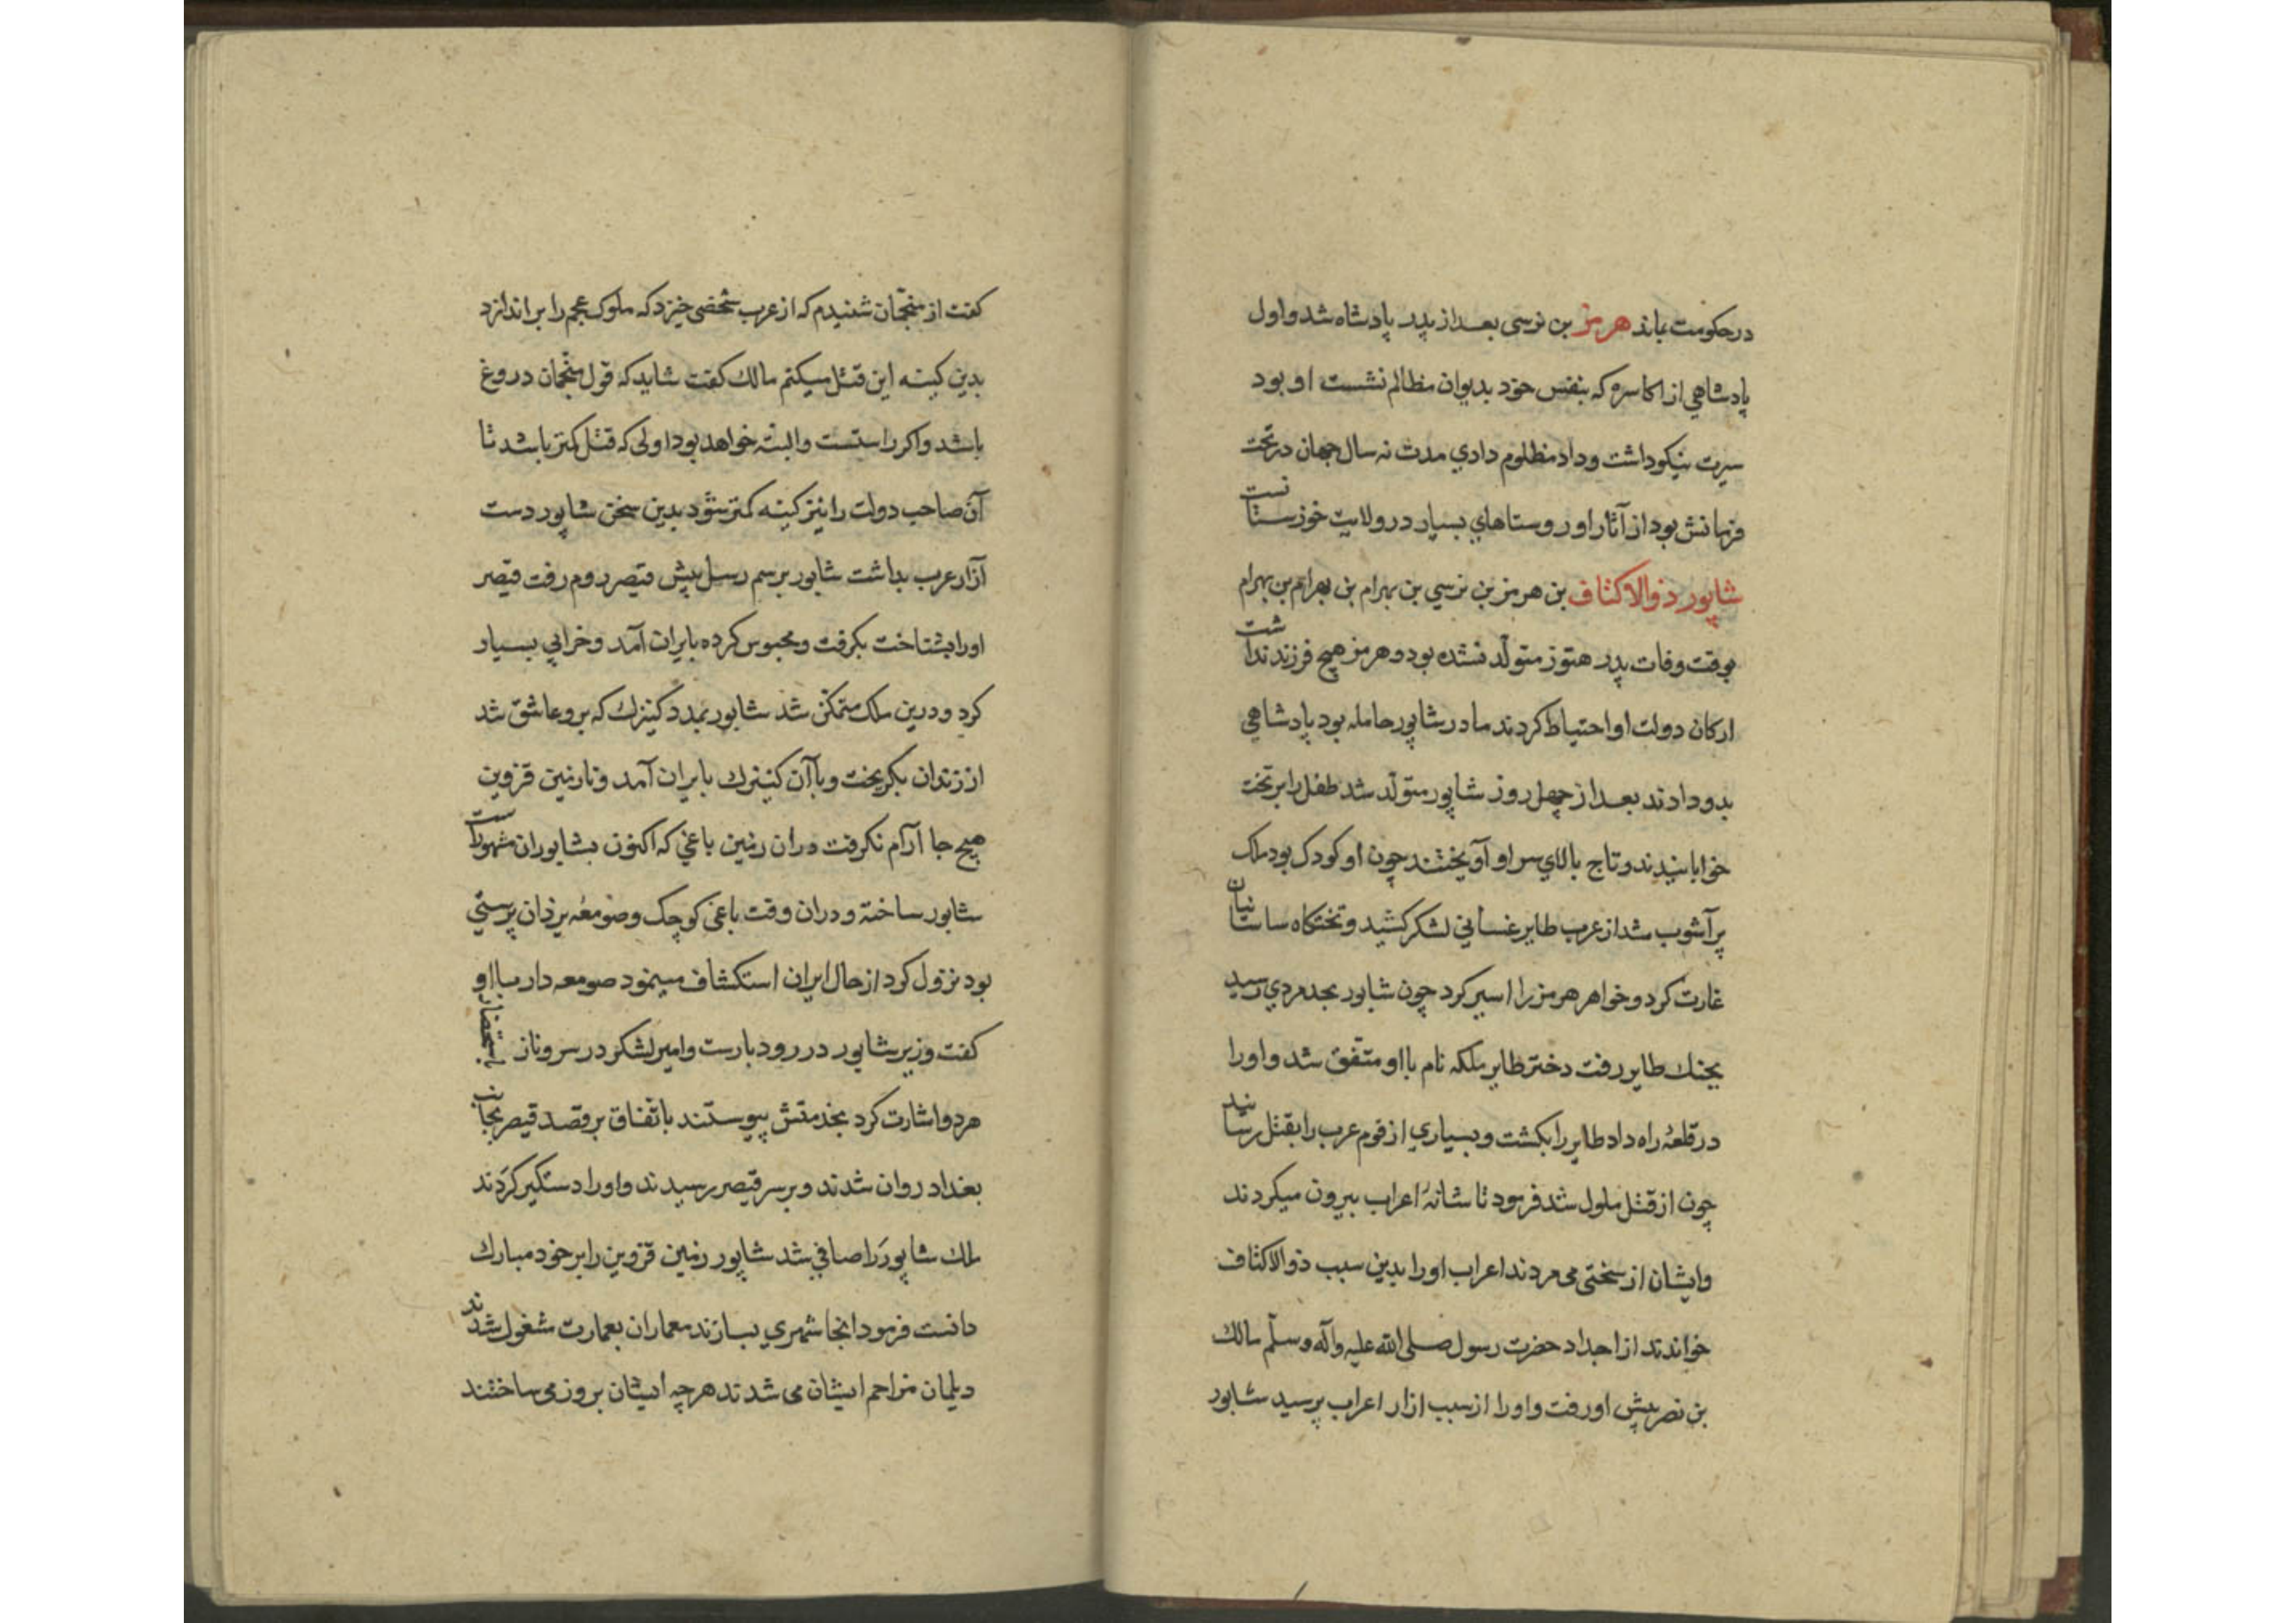 در حکومت بماند هرمز بن نرسی بعد از پدر پادشاه شد و اول
پادشاهی از اکاسره که بنفس خود بدیوان مظالم نشست او بود
سیرت نیکو داشت و داد مظلوم دادی مدت نه سال جهان در تحت
فرمانش بود از آثار او روستاهای بسیار در ولایت خوزستانست
شاپور ذوالاکتاف بن هرمز بن نرسی بن بهرام بن بهرام بن بهرام
بوقت وفات پدر هنوز متولّد نشده بود و هرمز هیچ فرزند نداشت
ارکان دولت او احتیاط کردند مادر شاپور حامله بود پادشاهی
بدو دادند بعد از چهل روز شاپور متولّد شد طفل را بر تخت
خوابانیدند و تاج بالای سر او آویختند چون او کودک بود ملک
پر آشوب شد از عرب طایر غسانی لشکر کشید و تختکاه ساسانیان
غارت کرد و خواهر هرمز را اسیر کرد چون شابور بحد مردی رسید
بجنك طایر رفت دختر طایر ملکه نام با او متّفق شد و او را
در قلعهٔ راه داد طایر را بکشت و بسیاری از قوم عرب را بقتل رسانید
چون از قتل ملول شد فرمود تا شانهٔ اعراب بیرون میکردند
و ایشان از سختی می مردند اعراب او را بدین سبب ذوالاکتاف
خواندند از اجداد حضرت رسول صلی الله علیه وآله وسلّم مالك
بن نصر پیش او رفت و او را از سبب ازار اعراب پرسید شابور
کفت از منجّمان شنیدم که از عرب شخصی خیزد که ملوک عجم را بر اندازد
بدین کینه این قتل میکنم مالك کفت شاید که قول منجّمان دروغ
باشد و اکر راستست و البته خواهد بود اولی که قتل کمتر باشد تا
آن صاحب دولت را نیز کینه کمتر شود بدین سخن شاپور دست
آزار عرب بداشت شابور برسم رسل پیش قیصر روم رفت قیصر
او را بشناخت بکرفت و محبوس کرده بایران آمد و خرابی بسیار
کرد و درین ملک متمکّن شد شابور بمدد کنیزك که برو عاشق شد
از زندان بکریخت و با آن کنیزك بایران آمد و تا زمین قزوین
هیچ جا آرام نکرفت در ان زمین باغی که اکنون بشابوران مشهورست
شابور ساخته و دران وقت باغی کوچک و صومعهٔ یزدان پرستی
بود نزول کرد از حال ایران استکشاف مینمود صومعه دار با او
کفت وزیر شابور در رودبارست و امیر لشکر در سروناز باستحضار
هر دو اشارت کرد بخدمتش پیوستند باتّفاق بر قصد قیصر بجانب
بغداد روان شدند و بر سر قیصر رسیدند و او را دستکیر کردند
ملك شاپور را صافی شد شاپور زمین قزوین را بر خود مبارك
دانست فرمود انجا شهری بسازند معماران بعمارت شغول شدند
دیلمان مزاحم ایشان می شدند هرچه ایشان بروز می ساختند